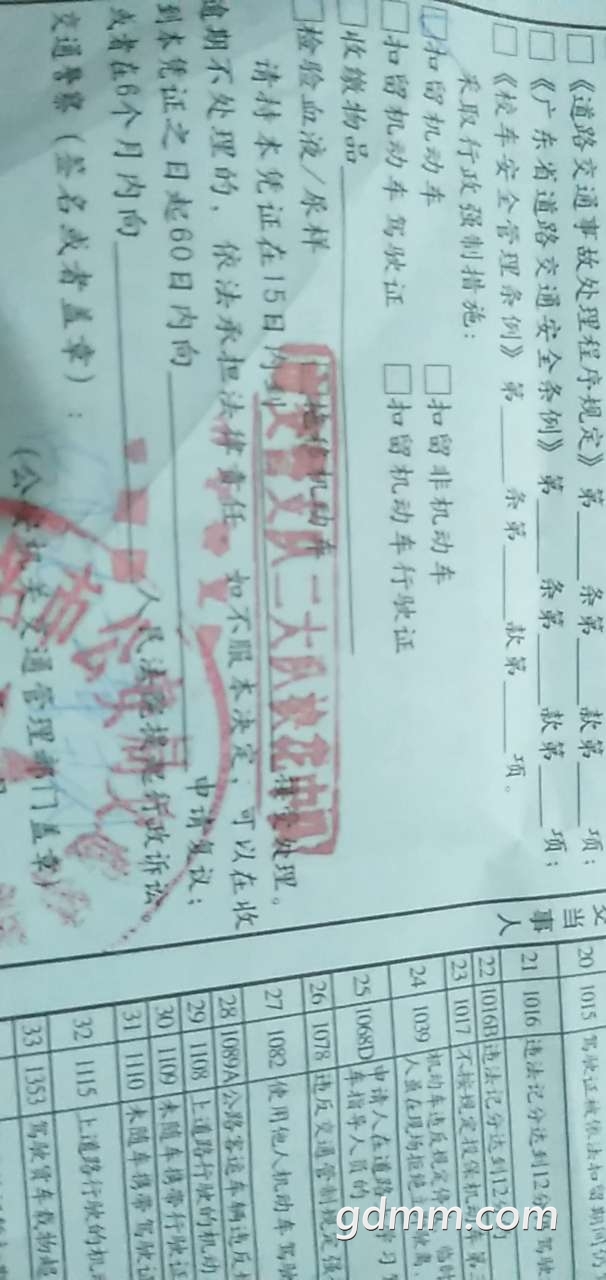 《道路交通事故处理程序规定》第 条第 款第 项；
《广东省道路交通安全条例》第 条第 款第 项；
《校车安全管理条例》第 条第 款第 项。
采取行政强制措施：
扣留机动车 扣留非机动车
扣留机动车驾驶证 扣留机动车行驶证
收缴物品
检验血液/尿样 拖移机动车
请持本凭证在15日内到 接受处理。
逾期不处理的，依法承担法律责任 如不服本决定，可以在收
到本凭证之日起60日内向 申请复议；
或者在6个月内向 人民法院提起行政诉讼。
交通警察（签名或者盖章）：
（公安机关交通管理部门盖章）
交
当
事
人
20 1015 驾驶证被依法扣留期间仍
21 1016 违法记分达到12分 驾驶
22 1016B 违法记分达到12分
23 1017 不按规定投保机
24 1039 机动车违反规定停 临时
人虽在现场拒绝 驶离
25 1068D 申请人在道路 学习
车指导人员的
26 1078 违反交通管制规定强
27 1082 使用他人机动车驾驶
28 1089A 公路客运车辆违反
29 1108 上道路行驶的机动
30 1109 未随车携带行驶证
31 1110 未随车携带驾驶证
32 1115 上道路行驶的机
33 1353 驾驶货车载物超
gdmm.com